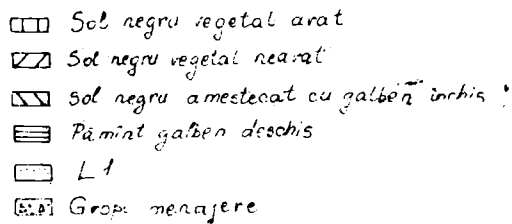 Sol negru vegetal arat
Sol negru vegetal nearat
Sol negru amestecat cu galben inchis
Pămînt galben deschis
L1
Gropi menajere